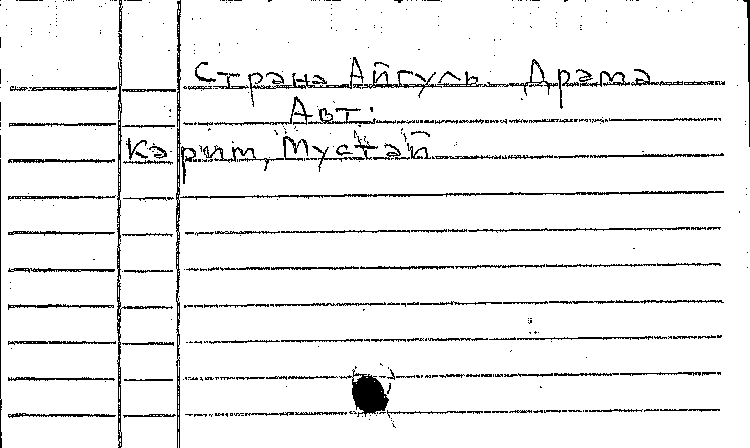 Страна Айгуль. Драма
Авт:
Карим, Мустай